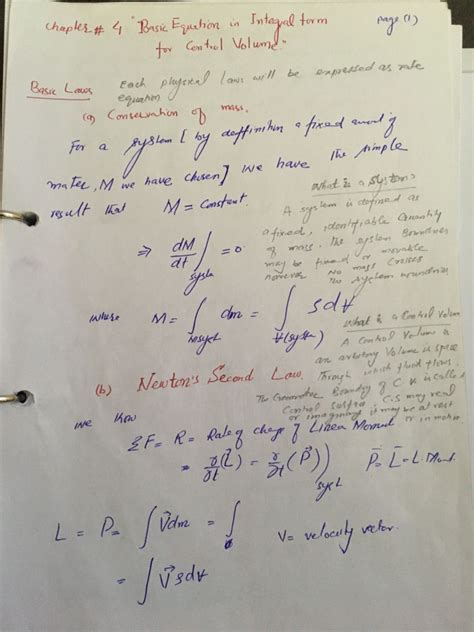 Chapter # 4 "Basic Equation in Integral form
for Control Volume"
page (1)
Basic Laws
Each physical laws will be expressed as rate
equation
(a) Conservation of mass.
For a system [ by deffinition a fixed amount of
matter, M we have chosen] we have the simple
result that M = Constant.
⇒ dM/dt)system = 0
What is a System
A system is defined as
a fixed, identifiable Quantity
of mass. The system Boundries
may be fixed or movable
however No mass Crosses
The system boundries
where M = ∫ dm = ∫ ρd∀
∀(system)
What is a Control Volume
A Control Volume is
an arbitrary Volume in space
Through which fluid flows.
The Geometric Boundry of C.V is called
Control surface C.S may real
or imaginary it may be at rest
or in motion
(b) Newton's Second Law.
we know
ΣF = R = Rate of change of Linear Moment
= ∂/∂t(L⃗) = ∂/∂t(P⃗))syst
P̄ = L̄ = L.Mont.
L = P = ∫V⃗dm = ∫
V = velocity vector.
= ∫V⃗ρd∀